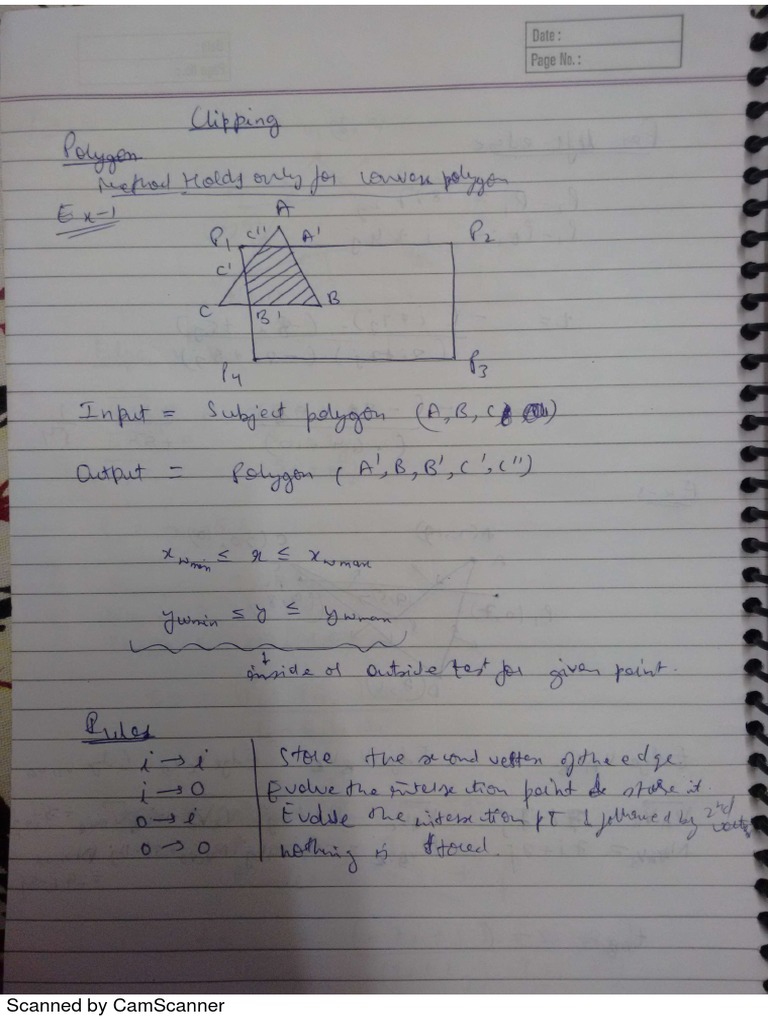 Date :
Page No. :
Clipping
Polygon
Method Holds only for convex polygon
Ex-1
A
P1 C'' A' P2
C'
C B
B'
P4 P3
Input = Subject polygon (A, B, C)
Output = Polygon (A', B, B', C', C'')
xwmin ≤ x ≤ xwmax
ywmin ≤ y ≤ ywmax
inside or outside test for given point.
Rules
i → i | Store the second vertex of the edge.
i → o | Evolve the intersection point & store it.
o → i | Evolve the intersection pt & followed by 2nd vertex
o → o | nothing is stored.
Scanned by CamScanner